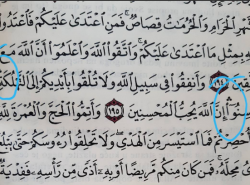 ٱلْحَرَامِ وَٱلْحُرُمَٰتُ قِصَاصٌ فَمَنِ ٱعْتَدَىٰ عَلَيْكُمْ فَٱعْتَدُوا۟
بِمِثْلِ مَا ٱعْتَدَىٰ عَلَيْكُمْ وَٱتَّقُوا۟ ٱللَّهَ وَٱعْلَمُوٓا۟ أَنَّ ٱللَّهَ مَعَ
١٩٤ وَأَنفِقُوا۟ فِى سَبِيلِ ٱللَّهِ وَلَا تُلْقُوا۟ بِأَيْدِيكُمْ إِلَى
إِنَّ ٱللَّهَ يُحِبُّ ٱلْمُحْسِنِينَ ١٩٥ وَأَتِمُّوا۟ ٱلْحَجَّ وَٱلْعُمْرَةَ لِلَّهِ
فَمَا ٱسْتَيْسَرَ مِنَ ٱلْهَدْىِ وَلَا تَحْلِقُوا۟ رُءُوسَكُمْ حَتَّىٰ
مَحِلَّهُۥ فَمَن كَانَ مِنكُم مَّرِيضًا أَوْ بِهِۦٓ أَذًى مِّن رَّأْسِهِۦ فَفِدْيَةٌ